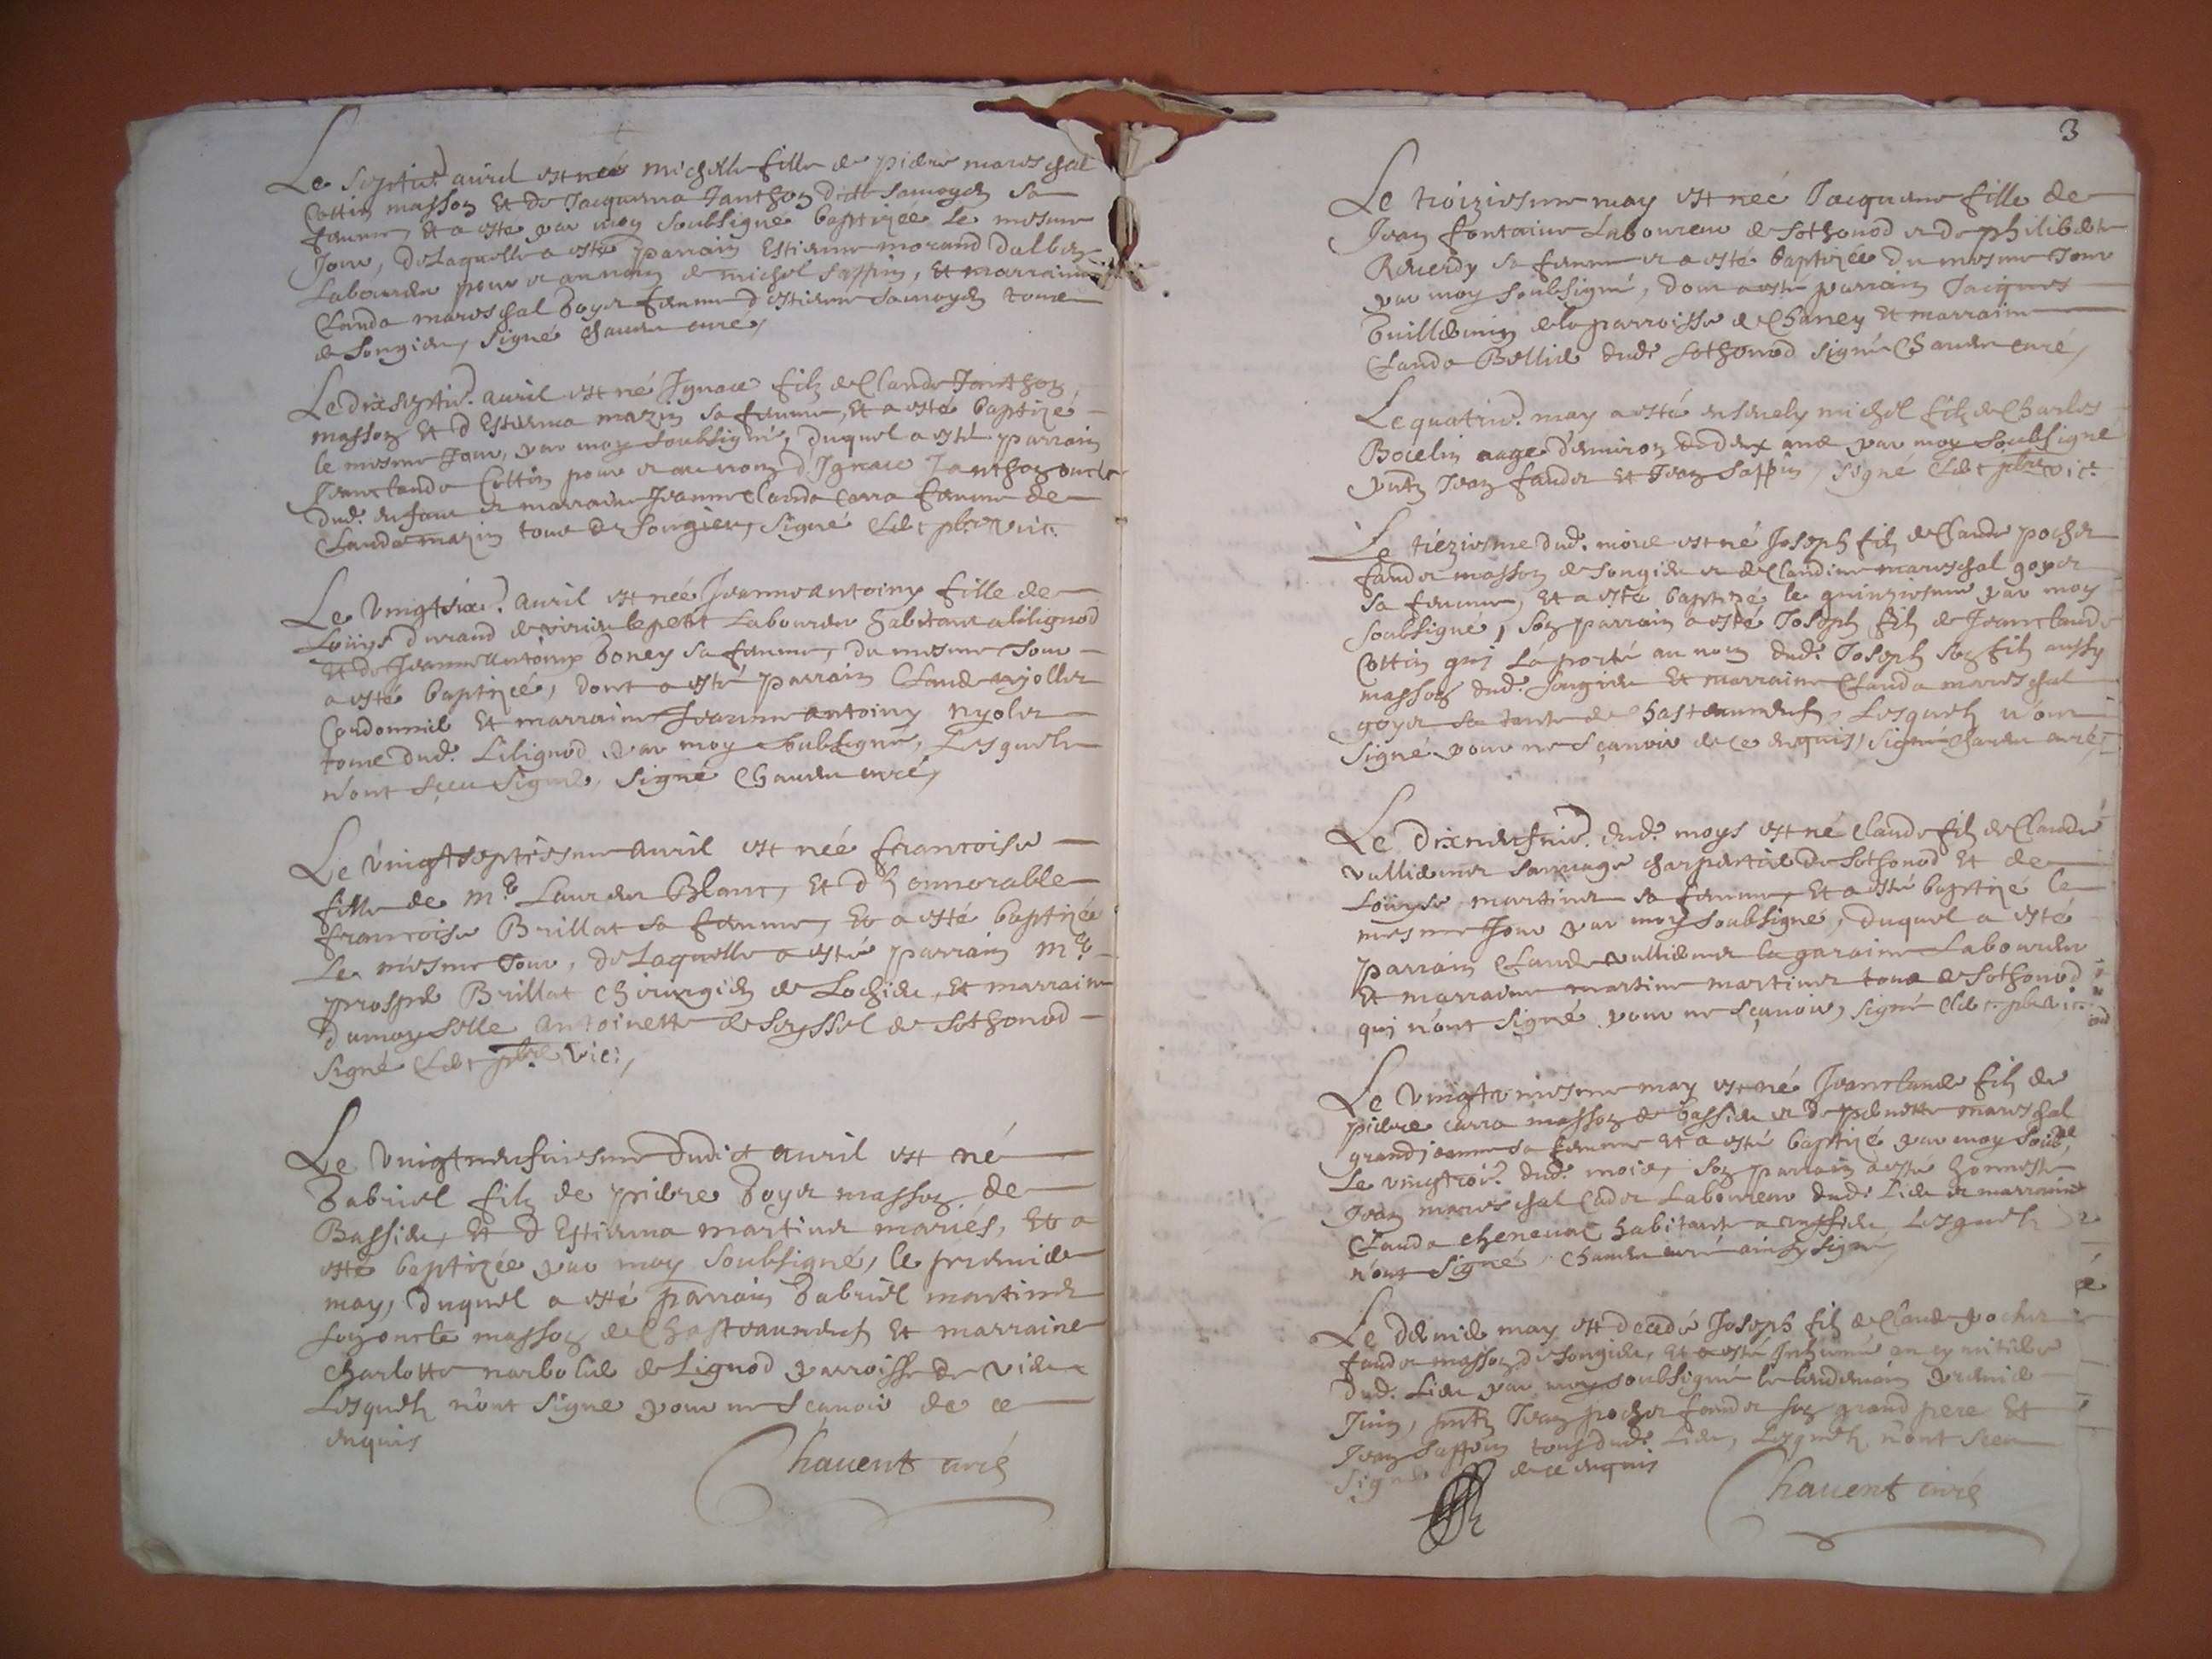 Le septie. avril est née michelle fille de pierre mareschal
Cottin masson Et de Jacquema Janthon ditte samoyen sa
femme, Et a esté par moy soubsigné baptizée Le mesme
Jour, de Laquelle a esté parrain Estienne morand
Laboureur pour et au nom de michel Sappin, Et marraine
Clauda mareschal Goyet femme d'estienne samoyen tous
de Songieu, signé Chavent curé,
Le dix septie. avril est né Ignace filz de Claude Janthon
masson Et d'Estienna mazin sa femme, Et a esté baptizé
le mesme Jour, par moy soubsigné, duquel a esté parrain
Jeanclaude Cottin pour et au nom d'Ignace Janthon oncle
dud. enfant et marraine Jeanne Clauda Carra femme de
Claude mazin tous de Songieu, signé pbre. vic.
Le vingtsix. avril est née Jeanne antoiny fille de
Louys durand de virieu le petit Laboureur habitant a lilignod
Et de Jeanne antoiny Goney sa femme, du mesme Jour
a esté baptizée, dont a esté parrain Claude
Cordonnier Et marraine Jeanne antoiny nyolet
tous dud. Lilignod par moy soubsigné, Lesquels
n'ont sceu signer, signé Chavent curé,
Le vingtseptiesme avril est née francoise
fille de me. Laurent Blanc, Et d'honnorable
francoise Brillat sa femme, Et a esté baptizée
Le mesme Jour, de Laquelle a esté parrain me.
prosper Brillat Chirurgien de Lochieu, Et marraine
damoyselle antoinette de seyssel de Sothonod
signé pbre. vic.,
Le vingtneufviesme dudict avril est né
Gabriel filz de pierre Goyet masson de
Bassieu, Et d'Estienna martinet mariés, Et a
esté baptizée par moy soubsigné, le premier
may, duquel a esté parrain Gabriel martinet
son oncle masson de Chasteauneuf Et marraine
Charlotte narbolier de Lignod parroisse de vieu
Lesquels n'ont signé pour ne scavoir de ce
enquis
Chavent curé
3
Le troiziesme may est née Jacqueme fille de
Jean fontaine Laboureur de Sothonod et de philiberte
Reverdy sa femme et a esté baptizée du mesme Jour
par moy soubsigné, dont a esté parrain Jacques
Guillermin de la parroisse de Chaney Et marraine
Clauda Bellier dud. Sothonod signé Chavent curé,
Le quatrie. may a esté ensevely michel filz de Charles
Bocelin aagé d'environ de deux ans par moy soubsigné
pntz Jean fauder Et Jean Sappin, signé pbre vic.
Le tieziesme dud. mois est né Joseph filz de Claude pochet
faudet masson de Songieu et de Claudine mareschal goyet
sa femme, Et a esté baptizé le quinziesme par moy
soubsigné, son parrain a esté Joseph filz de Jeanclaude
Cottin qui l'a porté au nom dud. Joseph son filz aussy
masson dud. Songieu Et marraine Clauda mareschal
goyet sa tante de Chasteauneuf, Lesquelz n'ont
signé pour ne scavoir de ce enquis, signé Chavent curé,
Le dixneufvie. dud. moys est né Claude filz de Claude
vulliemet sauvage charpentier de Sothonod Et de
Louyse martinet sa femme, Et a esté baptizé le
mesme Jour par moy soubsigné, duquel a esté
parrain Claude vulliemet la garaine Laboureur
Et marraine martine martinet tous de Sothonod
qui n'ont signé pour ne scavoir, signé pbre vic.
Le vingtuniesme may est né Jeanclaude filz de
pierre carra masson de Bassieu et de pernette mareschal
grandjeanne sa femme Et a esté baptizé par moy soub.
Le vingtroi. dud. mois, son parrain a esté honneste
Jean mareschal Cadet Laboureur dud. Lieu et marraine
Clauda cheneval habitante a Lesquelz
n'ont signé, Chavent curé ainsy signé
Le dernier may est decedé Joseph filz de Claude pochet
faudet masson de Songieu, Et a esté Inhumé au cymitiere
dud. Lieu par moy soubsigné le lendemain premier
Juin, pntz Jean pochet faudet son grand pere Et
Jean Sappin tous dud. Lieu, Lesquelz n'ont sceu
signer de ce enquis
Chavent curé